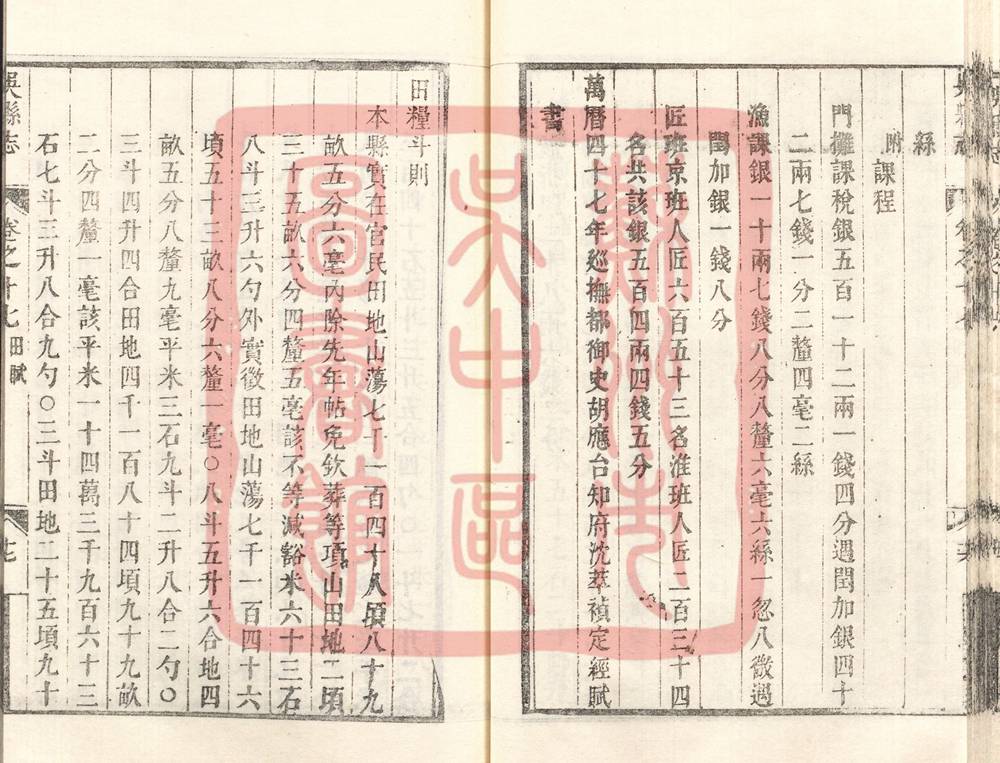 絲
附課程
門攤課稅銀五百一十二兩一錢四分遇閏加銀四十
二兩七錢一分二釐四毫二絲
漁課銀一十兩七錢八分八釐六毫六絲一忽八微遇
閏加銀一錢八分
匠班京班人匠六百五十三名淮班人匠二百三十四
名共該銀五百四兩四錢五分
萬曆四十七年巡撫都御史胡應台知府沈萃禎定經賦
書
田糧斗則
本縣實在官民田地山蕩七千一百四十八頃八十九
畝五分六毫內除先年帖免欽葬等項山田地二頃
三十五畝六分四釐五毫該不等減豁米六十三石
八斗三升六勺外實徵田地山蕩七千一百四十六
頃五十三畝八分六釐一毫〇八斗五升六合地四
畝五分八釐九毫平米三石九斗二升八合二勺〇
三斗四升四合田地四千一百八十四頃九十九畝
二分四釐一毫該平米一十四萬三千九百六十三
石七斗三升八合九勺〇三斗田地二十五頃九十
吳縣志
卷之十七 田賦
十七
蘇州市
吳中區
圖書館